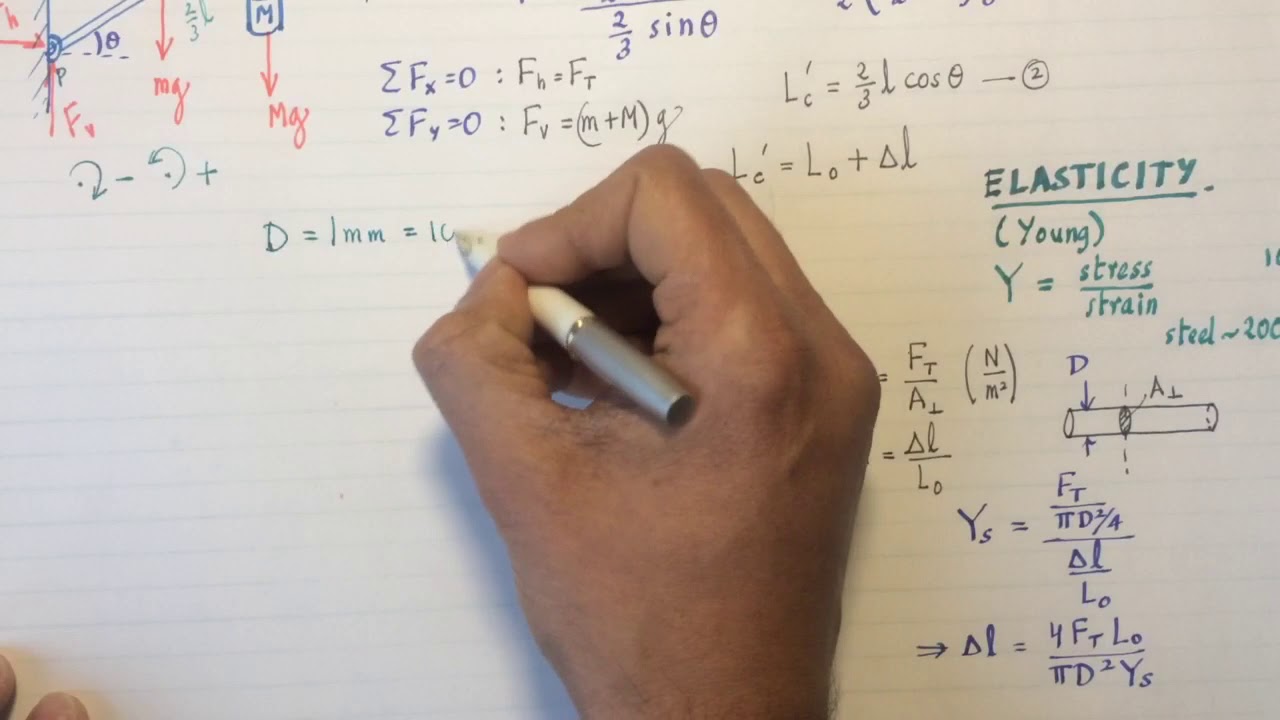 h
θ
2/3 l
M
P
mg
Mg
Fv
− +
2/3 sinθ
ΣFx=0 : Fh=FT
ΣFy=0 : Fv=(m+M)g
Lc' = 2/3 l cosθ — ②
Lc' = L₀ + Δl
D = 1mm = 10
ELASTICITY.
(Young)
Y = stress/strain
steel ~200
= FT/A⊥ (N/m²)
= Δl/L₀
D
A⊥
Ys = (FT/(πD²/4))/(Δl/L₀)
⇒ Δl = 4FTL₀/πD²Ys